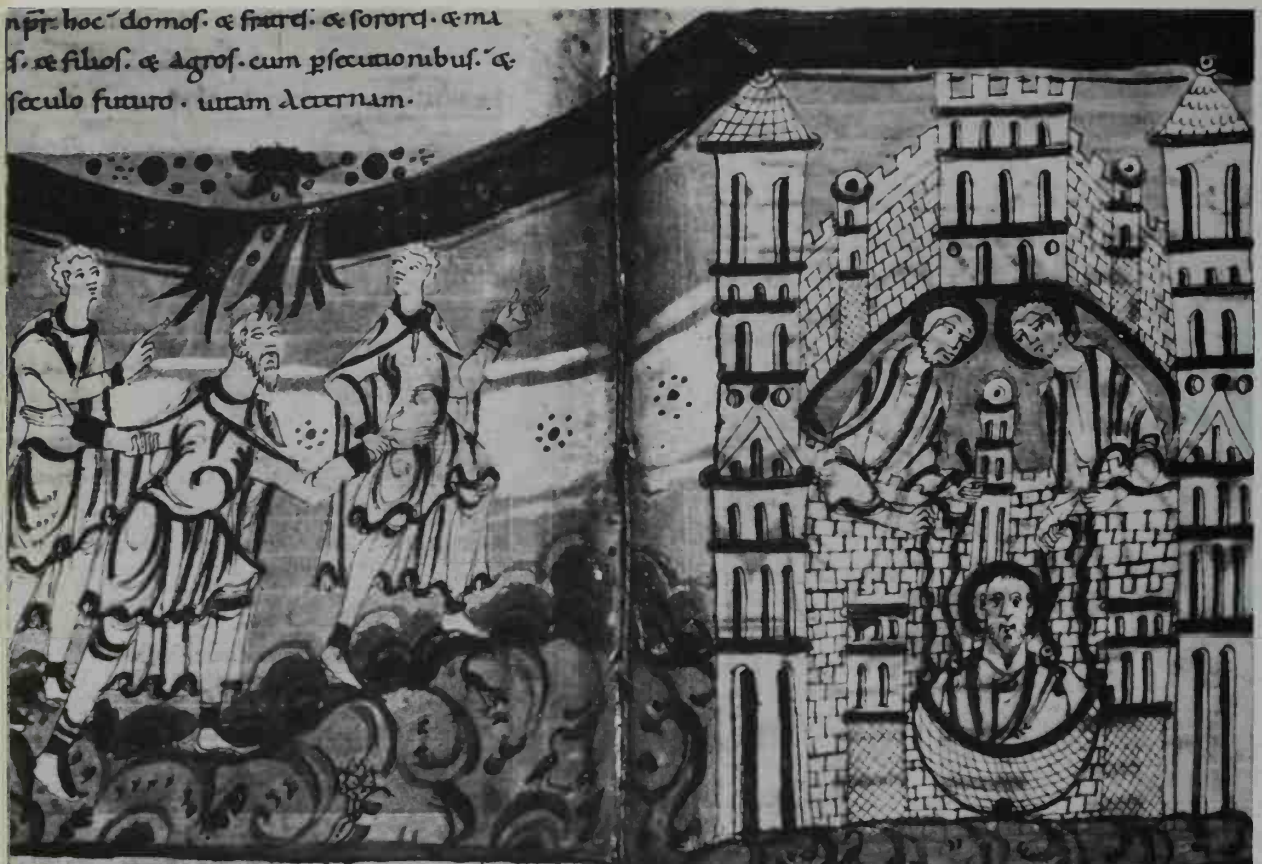 np̄r· hoc̄ domos· & fratres· & sorores· & ma
s· & filios· & agros· cum ꝑsecutionibus· &·
seculo futuro · uitam aeternam·